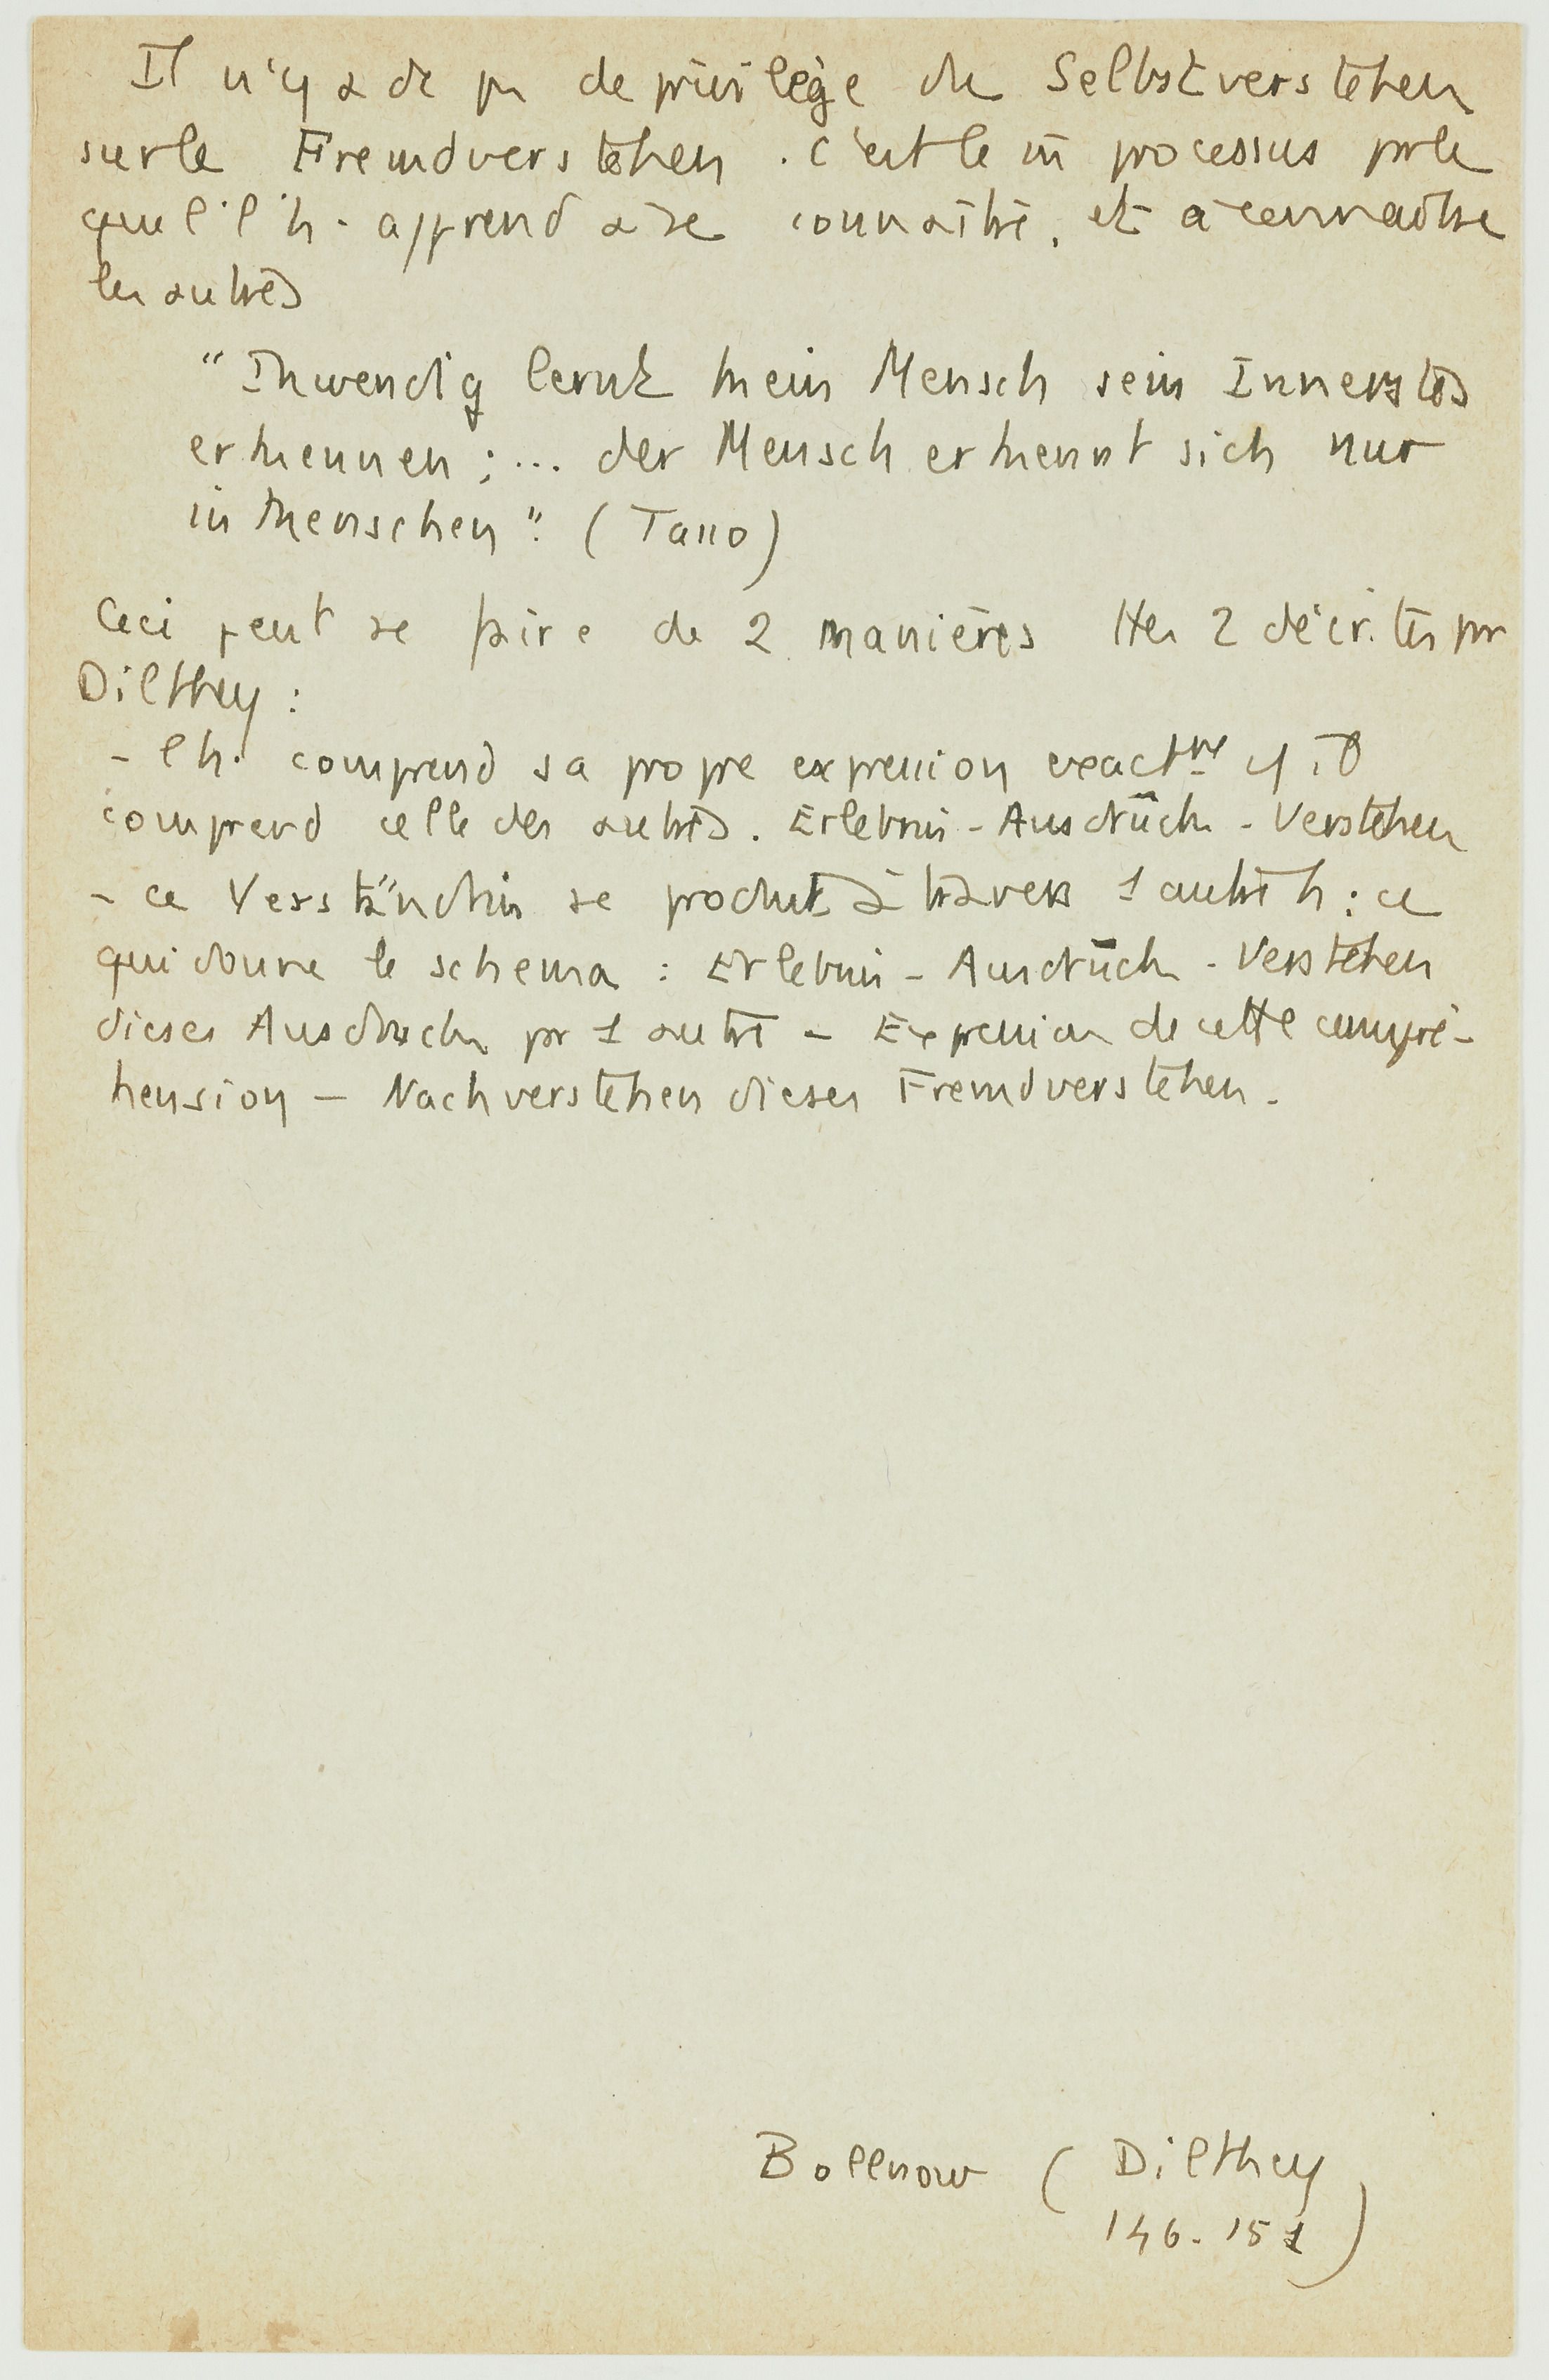 Il n'y a dc pas de privilège du Selbstverstehen
sur le Fremdverstehen. C'est le m̄ processus par le
quel l'h. apprend à se connaître, et à connaître
les autres
"Inwendig lernt kein Mensch sein Innerstes
erkennen ; ... der Mensch erkennt sich nur
im Menschen". (Tasso)
Ceci peut se faire de 2 manières ttes 2 décrites par
Dilthey :
- l'h. comprend sa propre expression exactmt cō il
comprend celle des autres. Erlebnis - Ausdrück - Verstehen
- ce Verständnis se produit à travers 1 autre h : ce
qui donne le schema : Erlebnis - Ausdrück - Verstehen
dieses Ausdrucks pr 1 autre - Expression de cette compré-
hension - Nachverstehen dieses Fremdverstehen.
Bollnow ( Dilthey
146-151 )